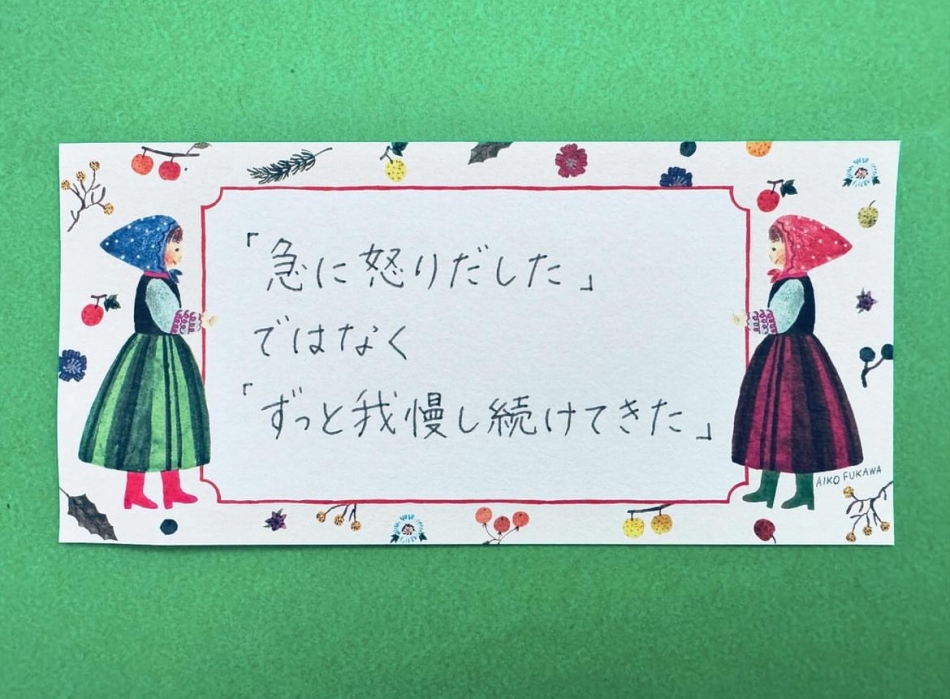 「急に怒りだした」
ではなく
「ずっと我慢し続けてきた」
AIKO FUKAWA